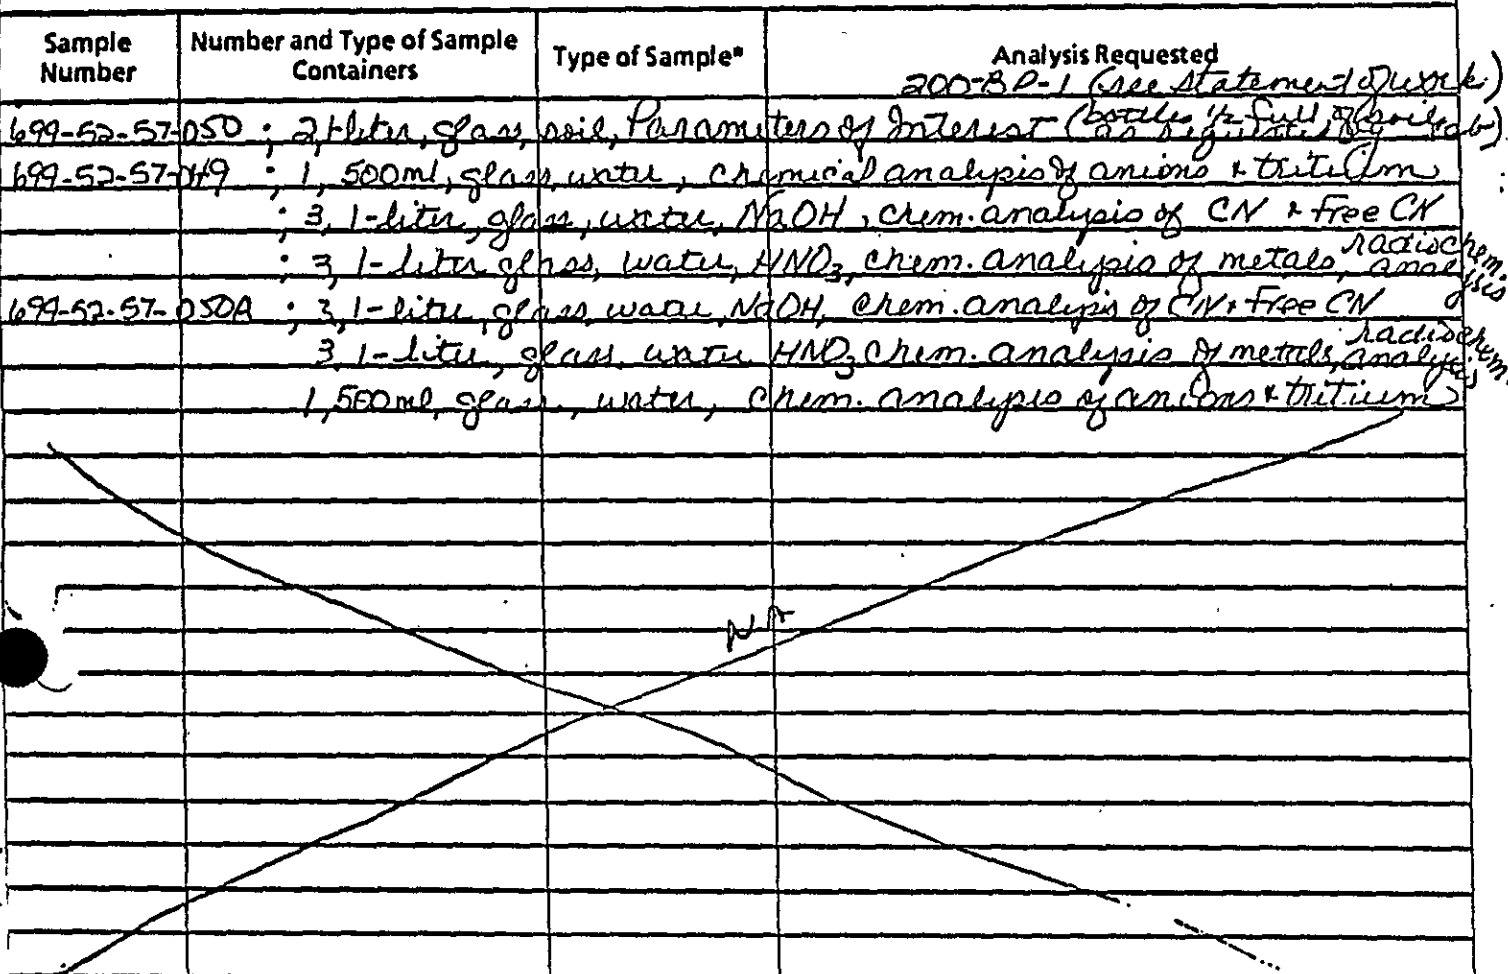 Sample Number
Number and Type of Sample Containers
Type of Sample*
Analysis Requested
200-BP-1 (see statement of work)
699-52-57-050 ; 2, 1-liter, glass, soil, Parameters of Interest (bottles 1/2 full of soil, as requested by lab).
699-52-57-049 ; 1, 500ml, glass, water, chemical analysis of anions & tritium
; 3, 1-liter, glass, water, NaOH, chem. analysis of CN & Free CN
; 3, 1-liter glass, water, HNO3, chem. analysis of metals, radiochem. analysis
699-52-57-050A ; 3, 1-liter, glass, water, NaOH, chem. analysis of CN & Free CN
3, 1-liter, glass, water HNO3 chem. analysis of metals, radiochem. analysis
1, 500ml, glass, water, chem. analysis of anions & tritium
NA